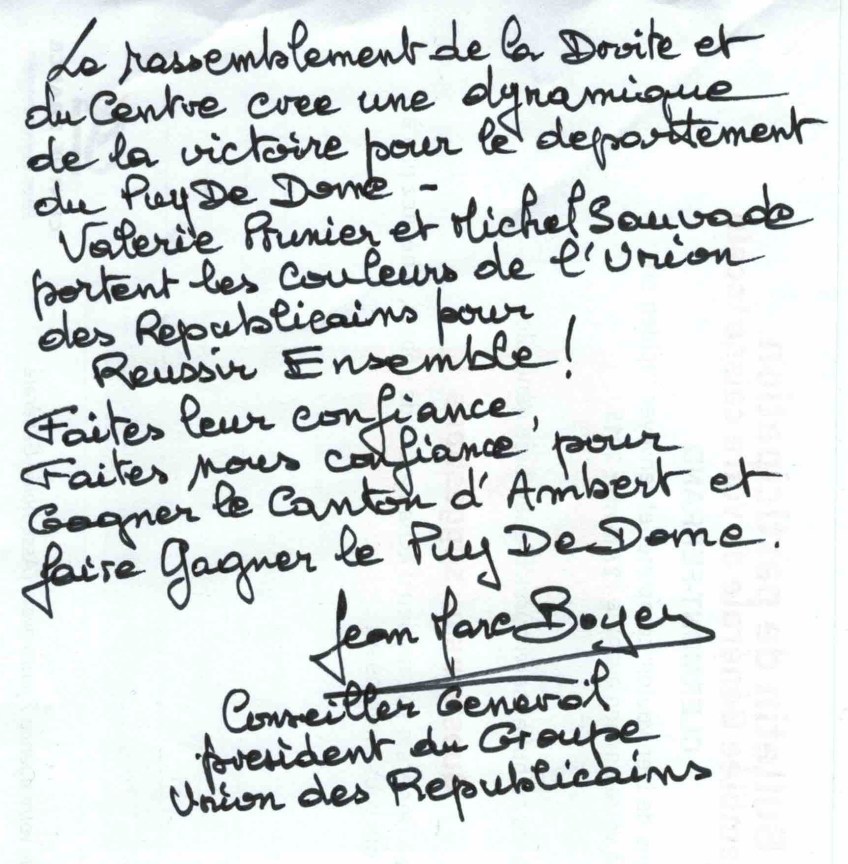 Le rassemblement de la Droite et
du Centre cree une dynamique
de la victoire pour le departement
du Puy De Dome -
Valerie Prunier et Michel Sauvade
portent les couleurs de l'Union
des Republicains pour
Reussir Ensemble !
Faites leur confiance,
Faites nous confiance pour
Gagner le Canton d'Ambert et
faire Gagner le Puy De Dome.
Jean Marc Boyer
Conseiller General
president du Groupe
Union des Republicains
Bulletin de participation